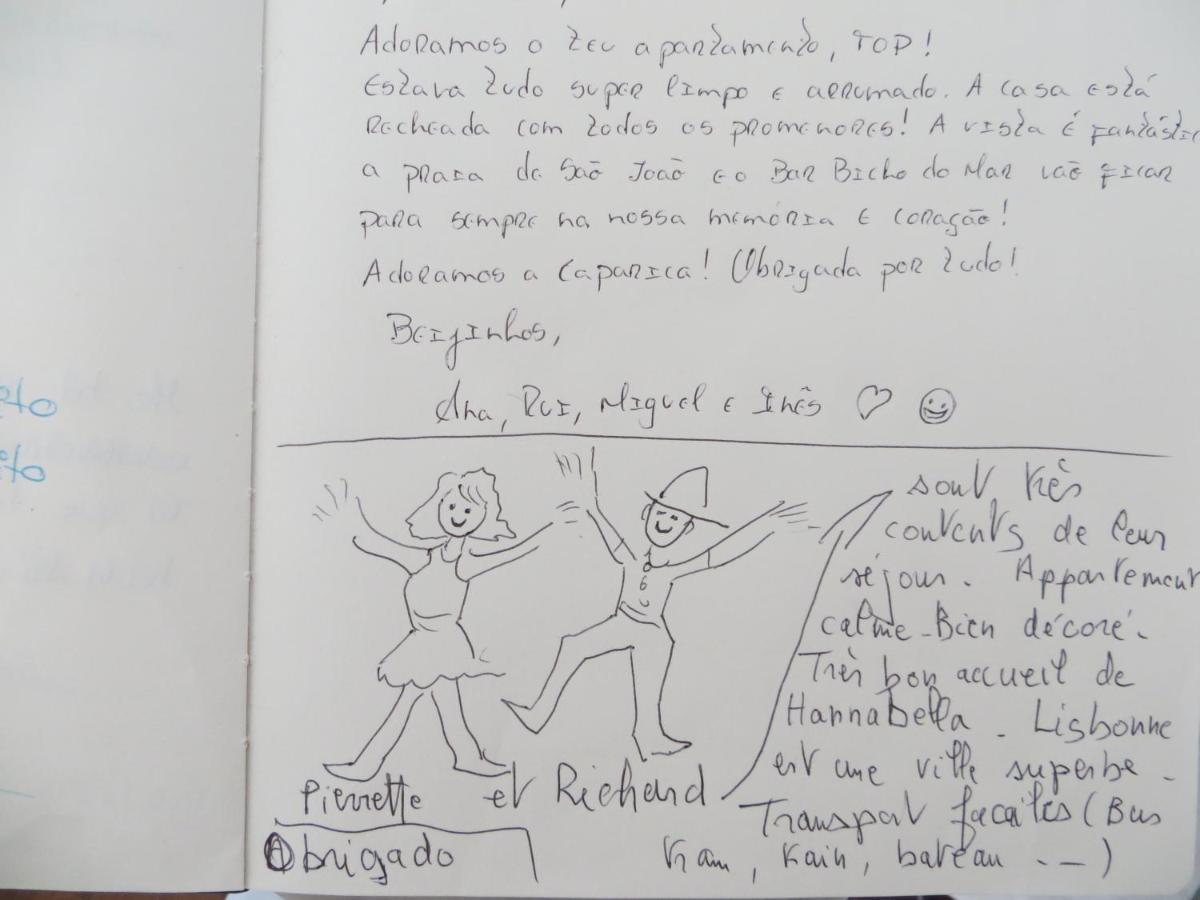 Adoramos o teu apartamento, TOP!
Estava tudo super limpo e arrumado. A casa está
recheada com todos os promenores! A vista é fantástic
a praia de São João e o Bar Bicho do Mar vão ficar
para sempre na nossa memória e coração!
Adoramos a Caparica! Obrigada por tudo!
Beijinhos,
Ana, Rui, Miguel e Inês
sont très
contents de leur
séjour. Appartement
calme - Bien décoré.
Très bon accueil de
Hannabella. Lisbonne
est une ville superbe.
Pierrette et Richard
Transport faciles (Bus
tram, train, bateau ...)
Obrigado